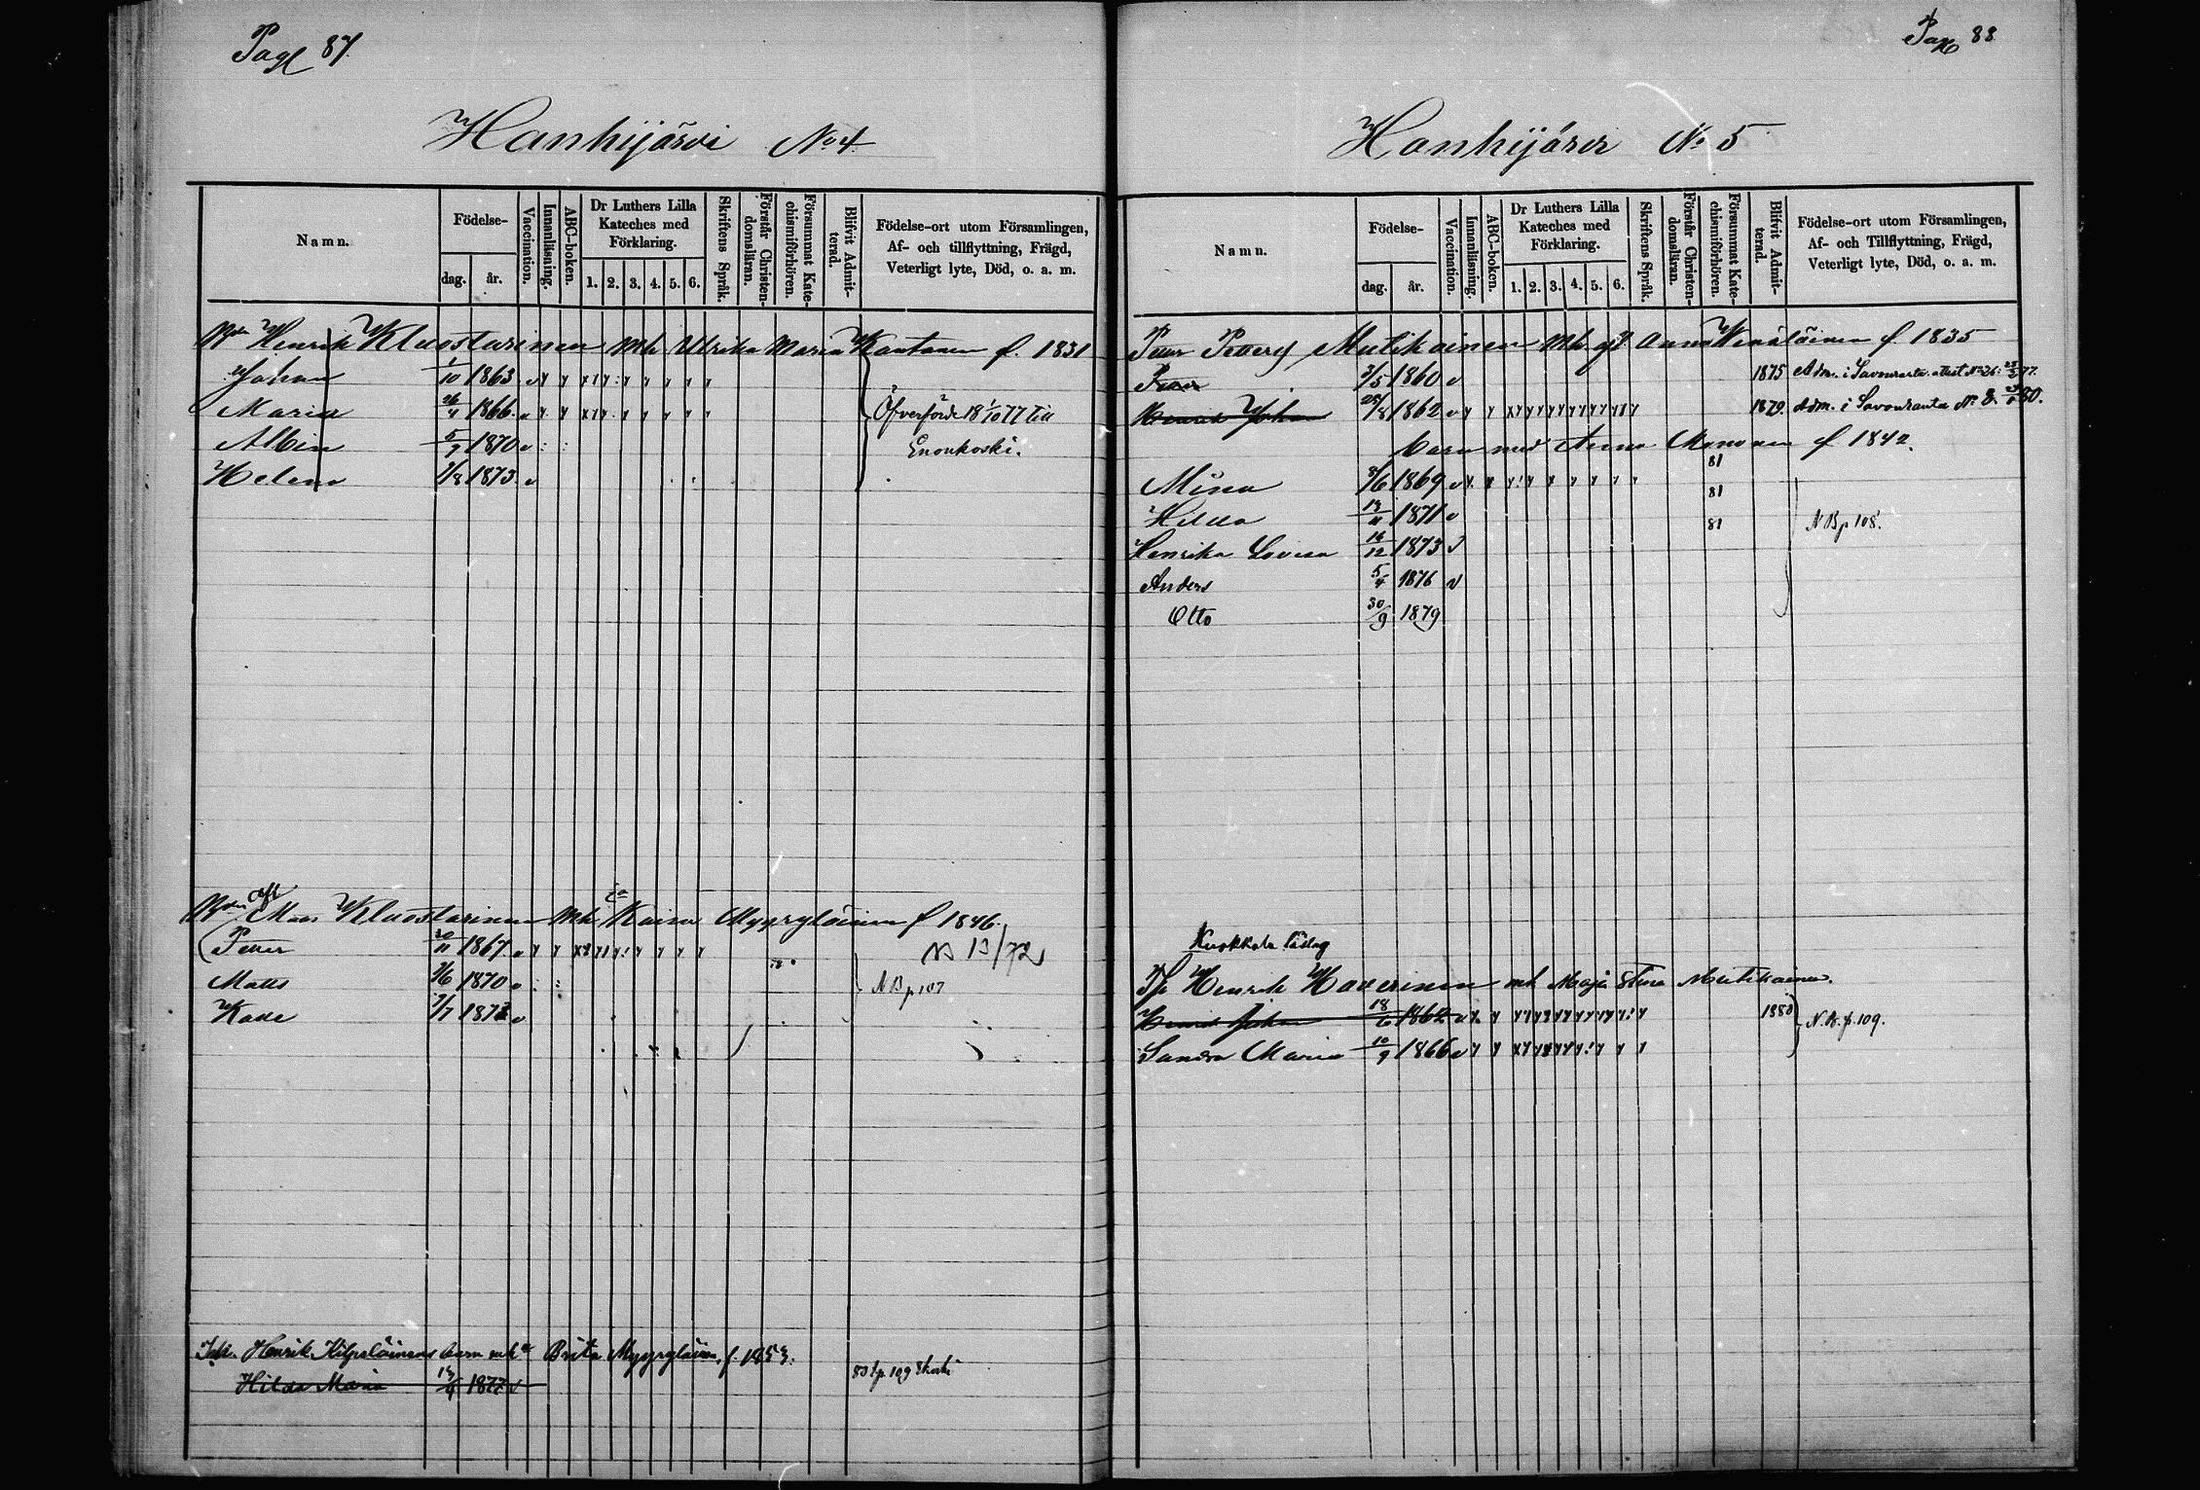 Page 87.
Hanhijärvi No 4
Namn.
Födelse-
dag.
år.
Vaccination.
Innanläsning.
ABC-boken.
Dr Luthers Lilla Kateches med Förklaring.
1. 2. 3. 4. 5. 6.
Skriftens Språk.
Förstår Christendomsläran.
Försummat Katechismiförhören.
Blifvit Admitterad.
Födelse-ort utom Församlingen, Af- och tillflyttning, Frägd, Veterligt lyte, Död, o. a. m.
Henrik Kluostarinen Mh Ulrika Maria Kautonen f. 1831
Johan 1/10 1863 v
Maria 26/4 1866 v Öfverförde 18 1/10 77 till
Albin 5/9 1870 v Enonkoski.
Helena 1873 v
Mats Kluostarinen Mh Kaisa Myyryläinen f 1846.
Petter 30/11 1867 v
Matts 3/6 1870 v N B p 107
1/7 187
Henrik Kilpeläinens barn mh Brita Myyryläinen, f. 1853.
Hilda Maria 1877 v p. 109
Page 88
Hanhijärvi No 5
Namn.
Födelse-
dag.
år.
Vaccination.
Innanläsning.
ABC-boken.
Dr Luthers Lilla Kateches med Förklaring.
1. 2. 3. 4. 5. 6.
Skriftens Språk.
Förstår Christendomsläran.
Försummat Katechismiförhören.
Blifvit Admitterad.
Födelse-ort utom Församlingen, Af- och Tillflyttning, Frägd, Veterligt lyte, Död, o. a. m.
Petter Mutikainen Mh Anna Wenäläinen f. 1835
Petter 3/5 1860 v 1875 Adm. i Savonranta 77.
Henrik Johan 25/8 1862 v 1879 Adm. i Savonranta No 8. 80.
barn med Anna f 1842.
81
Mina 8/6 1869 v
81
Hilda 13/11 1871 v 81 N B p 108.
Henrika Lovisa 14/12 1873 v
Anders 5/4 1876 v
Otto 30/9 1879
Kuokkala
Henrik Haverinen mh Maja Stina Mutikainen.
Henrik Johan 18/6 1862 v 1880 N. B. p. 109.
Sandra Maria 10/9 1866 v